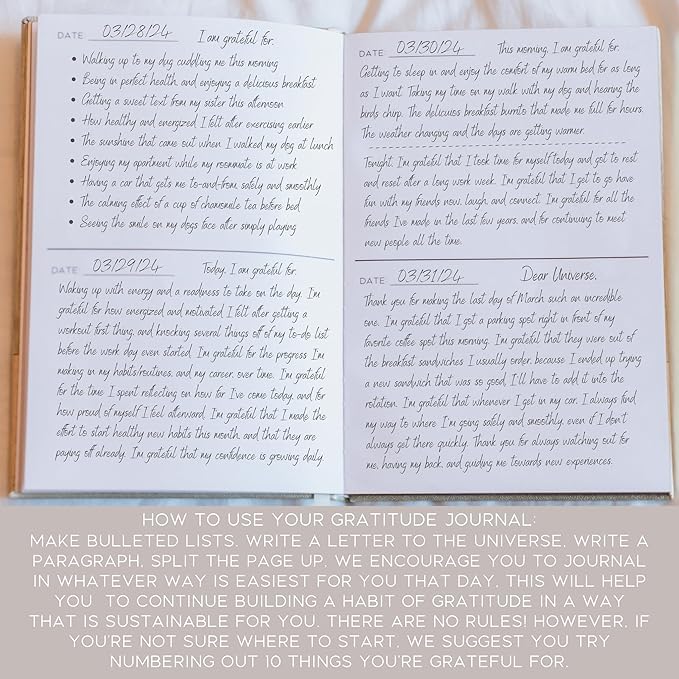 DATE 03/28/24 I am grateful for:
• Waking up to my dog cuddling me this morning
• Being in perfect health, and enjoying a delicious breakfast
• Getting a sweet text from my sister this afternoon
• How healthy and energized I felt after exercising earlier
• The sunshine that came out when I walked my dog at lunch
• Enjoying my apartment while my roommate is at work
• Having a car that gets me to-and-from, safely and smoothly
• The calming effect of a cup of chamomile tea before bed
• Seeing the smile on my dogs face after simply playing
DATE 03/29/24 Today, I am grateful for:
Waking up with energy and a readiness to take on the day. I'm
grateful for how energized and motivated I felt after getting a
workout first thing, and knocking several things off of my to-do list
before the work day even started. I'm grateful for the progress I'm
making in my habits/routines, and my career, over time. I'm grateful
for the time I spent reflecting on how far I've come today, and for
how proud of myself I feel afterward. I'm grateful that I made the
effort to start healthy new habits this month, and that they are
paying off already. I'm grateful that my confidence is growing daily.
DATE 03/30/24 This morning, I am grateful for:
Getting to sleep in and enjoy the comfort of my warm bed for as long
as I want. Taking my time on my walk with my dog and hearing the
birds chirp. The delicious breakfast burrito that made me full for hours.
The weather changing and the days are getting warmer.
Tonight, I'm grateful that I took time for myself today and got to rest
and reset after a long work week. I'm grateful that I get to go have
fun with my friends now, laugh, and connect. I'm grateful for all the
friends I've made in the last few years, and for continuing to meet
new people all the time.
DATE 03/31/24 Dear Universe,
Thank you for making the last day of March such an incredible
one. I'm grateful that I got a parking spot right in front of my
favorite coffee spot this morning. I'm grateful that they were out of
the breakfast sandwiches I usually order, because I ended up trying
a new sandwich that was so good, I'll have to add it into the
rotation. I'm grateful that whenever I get in my car, I always find
my way to where I'm going safely and smoothly, even if I don't
always get there quickly. Thank you for always watching out for
me, having my back, and guiding me towards new experiences.
HOW TO USE YOUR GRATITUDE JOURNAL:
MAKE BULLETED LISTS, WRITE A LETTER TO THE UNIVERSE, WRITE A
PARAGRAPH, SPLIT THE PAGE UP, WE ENCOURAGE YOU TO JOURNAL
IN WHATEVER WAY IS EASIEST FOR YOU THAT DAY, THIS WILL HELP
YOU TO CONTINUE BUILDING A HABIT OF GRATITUDE IN A WAY
THAT IS SUSTAINABLE FOR YOU. THERE ARE NO RULES! HOWEVER, IF
YOU'RE NOT SURE WHERE TO START, WE SUGGEST YOU TRY
NUMBERING OUT 10 THINGS YOU'RE GRATEFUL FOR.